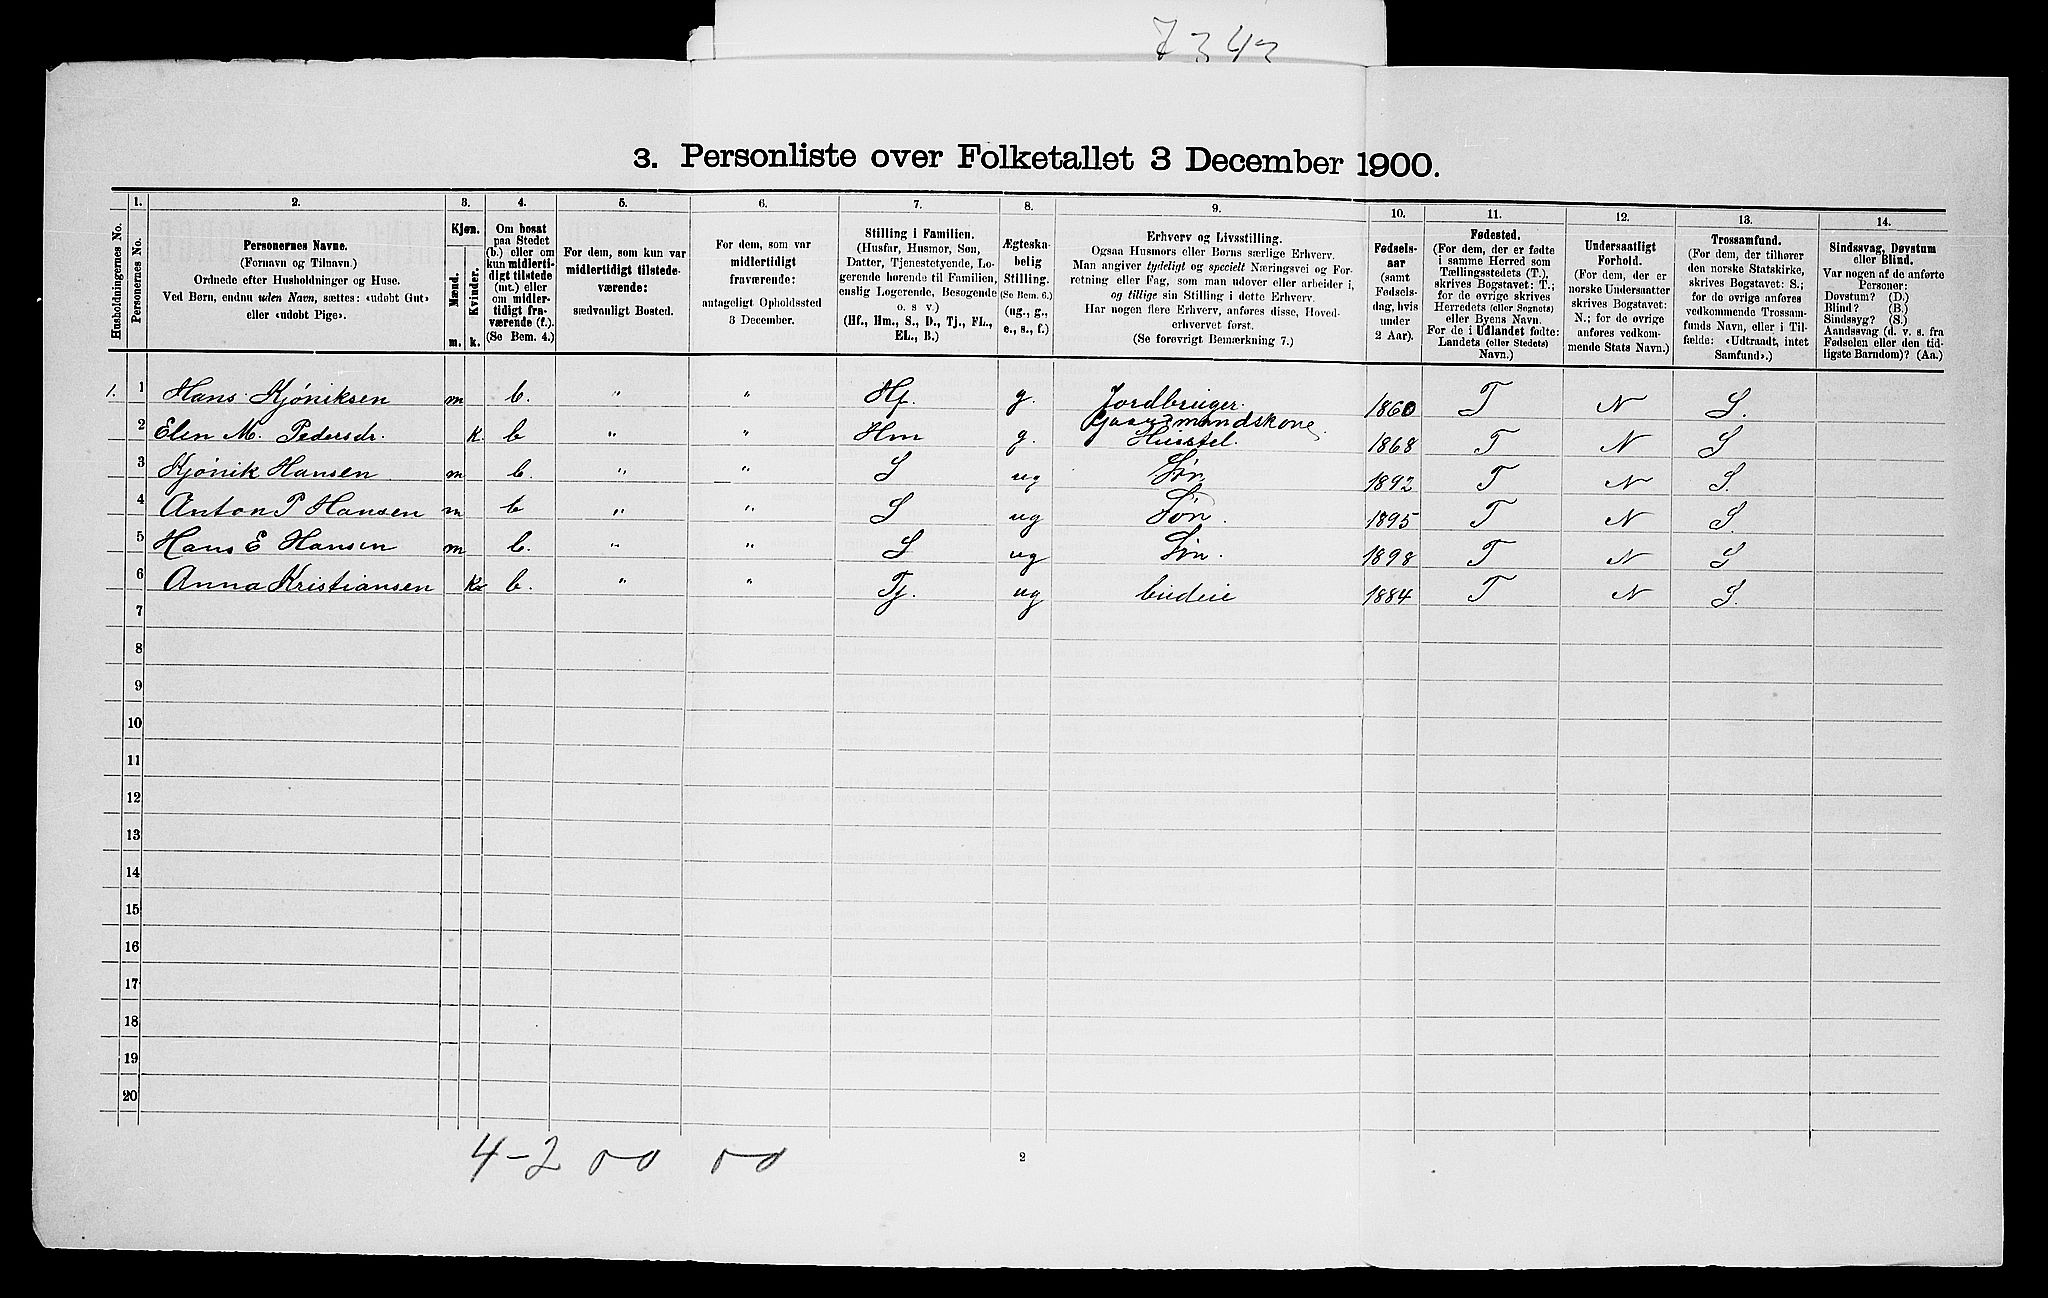 7343
3. Personliste over Folketallet 3 December 1900.
Husholdningernes No.
1.
Personernes No.
2.
Personernes Navne.
(Fornavn og Tilnavn.)
Ordnede efter Husholdninger og Huse.
Ved Børn, endnu uden Navn, sættes: «udøbt Gut»
eller «udøbt Pige».
3.
Kjøn.
Mænd.
Kvinder.
m.
k.
4.
Om bosat
paa Stedet
(b.) eller om
kun midlerti-
digt tilstede
(mt.) eller
om midler-
tidigt fra-
værende (f.).
(Se Bem. 4.)
5.
For dem, som kun var
midlertidigt tilstede-
værende:
sædvanligt Bosted.
6.
For dem, som var
midlertidigt
fraværende:
antageligt Opholdssted
3 December.
7.
Stilling i Familien.
(Husfar, Husmor, Søn,
Datter, Tjenestetyende, Lo-
gerende hørende til Familien,
enslig Logerende, Besøgende
o. s v.)
(Hf., Hm., S., D., Tj., FL.,
EL., B.)
8.
Ægteska-
belig
Stilling.
(Se Bem. 6.)
(ug., g.,
e., s., f.)
9.
Erhverv og Livsstilling.
Ogsaa Husmors eller Børns særlige Erhverv.
Man angiver tydeligt og specielt Næringsvei og For-
retning eller Fag, som man udøver eller arbeider i,
og tillige sin Stilling i dette Erhverv.
Har nogen flere Erhverv, anføres disse, Hoved-
erhvervet først.
(Se forøvrigt Bemærkning 7.)
10.
Fødsels-
aar
(samt
Fødsels-
dag, hvis
under
2 Aar).
11.
Fødested.
(For dem, der er fødte
i samme Herred som
Tællingsstedets (T.),
skrives Bogstavet: T.;
for de øvrige skrives
Herredets (eller Sognets)
eller Byens Navn.
For de i Udlandet fødte:
Landets (eller Stedets)
Navn.)
12.
Undersaatligt
Forhold.
(For dem, der er
norske Undersaatter
skrives Bogstavet:
N.; for de øvrige
anføres vedkom-
mende Stats Navn.)
13.
Trossamfund.
(For dem, der tilhører
den norske Statskirke,
skrives Bogstavet: S.;
for de øvrige anføres
vedkommende Trossam-
funds Navn, eller i Til-
fælde: «Udtraadt, intet
Samfund».)
14.
Sindssvag, Døvstum
eller Blind.
Var nogen af de anførte
Personer:
Døvstum? (D.)
Blind? (B.)
Sindssyg? (S.)
Aandssvag (d. v. s. fra
Fødselen eller den tid-
ligste Barndom)? (Aa.)
1. 1 Hans Kjöniksen m b. " " Hf. g. Jordbruger. 1860 T N S.
2 Elen M. Pedersdr. K. b " " Hm g. Gaardmandskone Husstel. 1868 T N S
3 Kjönik Hansen m b. " " S ug Sön 1892 T N S.
4 Anton P Hansen m b " " S ug Sön. 1895 T N S
5 Hans E Hansen m b. " " S ug Sön. 1898 T N S
6 Anna Kristiansen K b. " " Tj. ug budeie 1884 T N S.
7
8
9
10
11
12
13
14
15
16
17
18
19
20
4-2 00 00
2